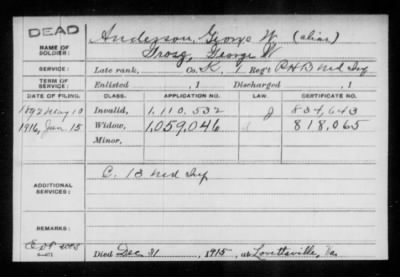 DEAD
Anderson, George W. (alias)
NAME OF SOLDIER: George W
SERVICE: Late rank, Co. K, 1 Reg't P.H.B. Md Inf
TERM OF SERVICE: Enlisted , 1 Discharged , 1
DATE OF FILING. CLASS. APPLICATION NO. LAW. CERTIFICATE NO.
1892 May 10 Invalid, 1,110,532 J 834,643
1916, Jan. 15 Widow, 1,059,046 818,065
Minor,
C. 13 Md Inf
ADDITIONAL SERVICES:
REMARKS:
Died Dec. 31 1915, at Lovettsville, Va.